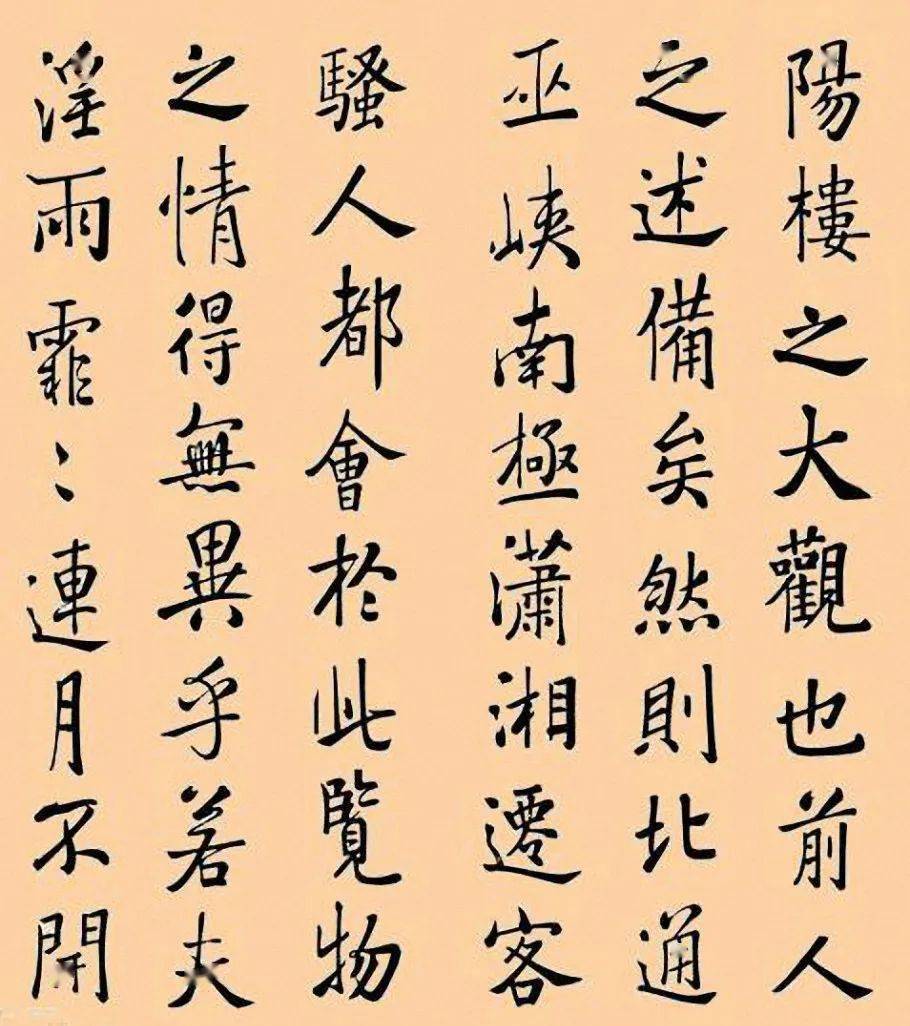 陽樓之大觀也前人
之述備矣然則北通
巫峽南極瀟湘遷客
騷人都會於此覽物
之情得無異乎若夫
淫雨霏〻連月不開